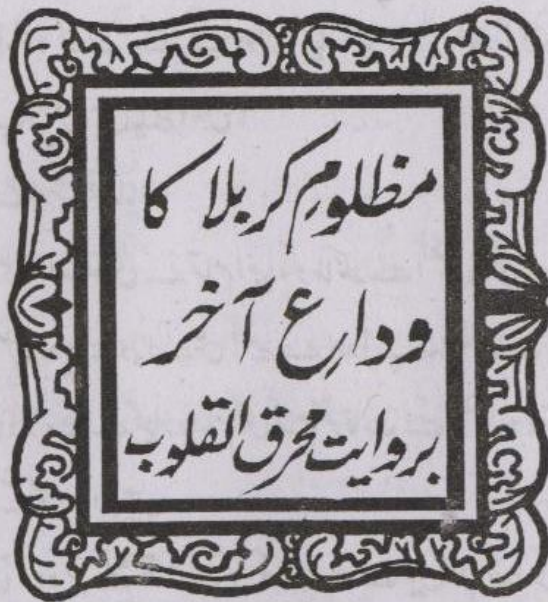 مظلومِ کربلا کا
وداعِ آخر
بروایت محرق القلوب